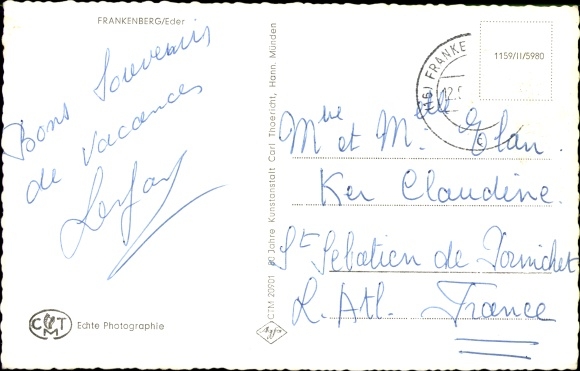 FRANKENBERG/Eder
Bons Souvenirs
de Vacances
CTM
Echte Photographie
CTM 20901 80 Jahre Kunstanstalt Carl Thoericht, Hann. Münden
Agfa
(16) FRANKE
12.
c
1159/II/5980
Mme et Melle Elan.
Ker Claudine.
St Sebatien de Pornichet
L. Atl. France